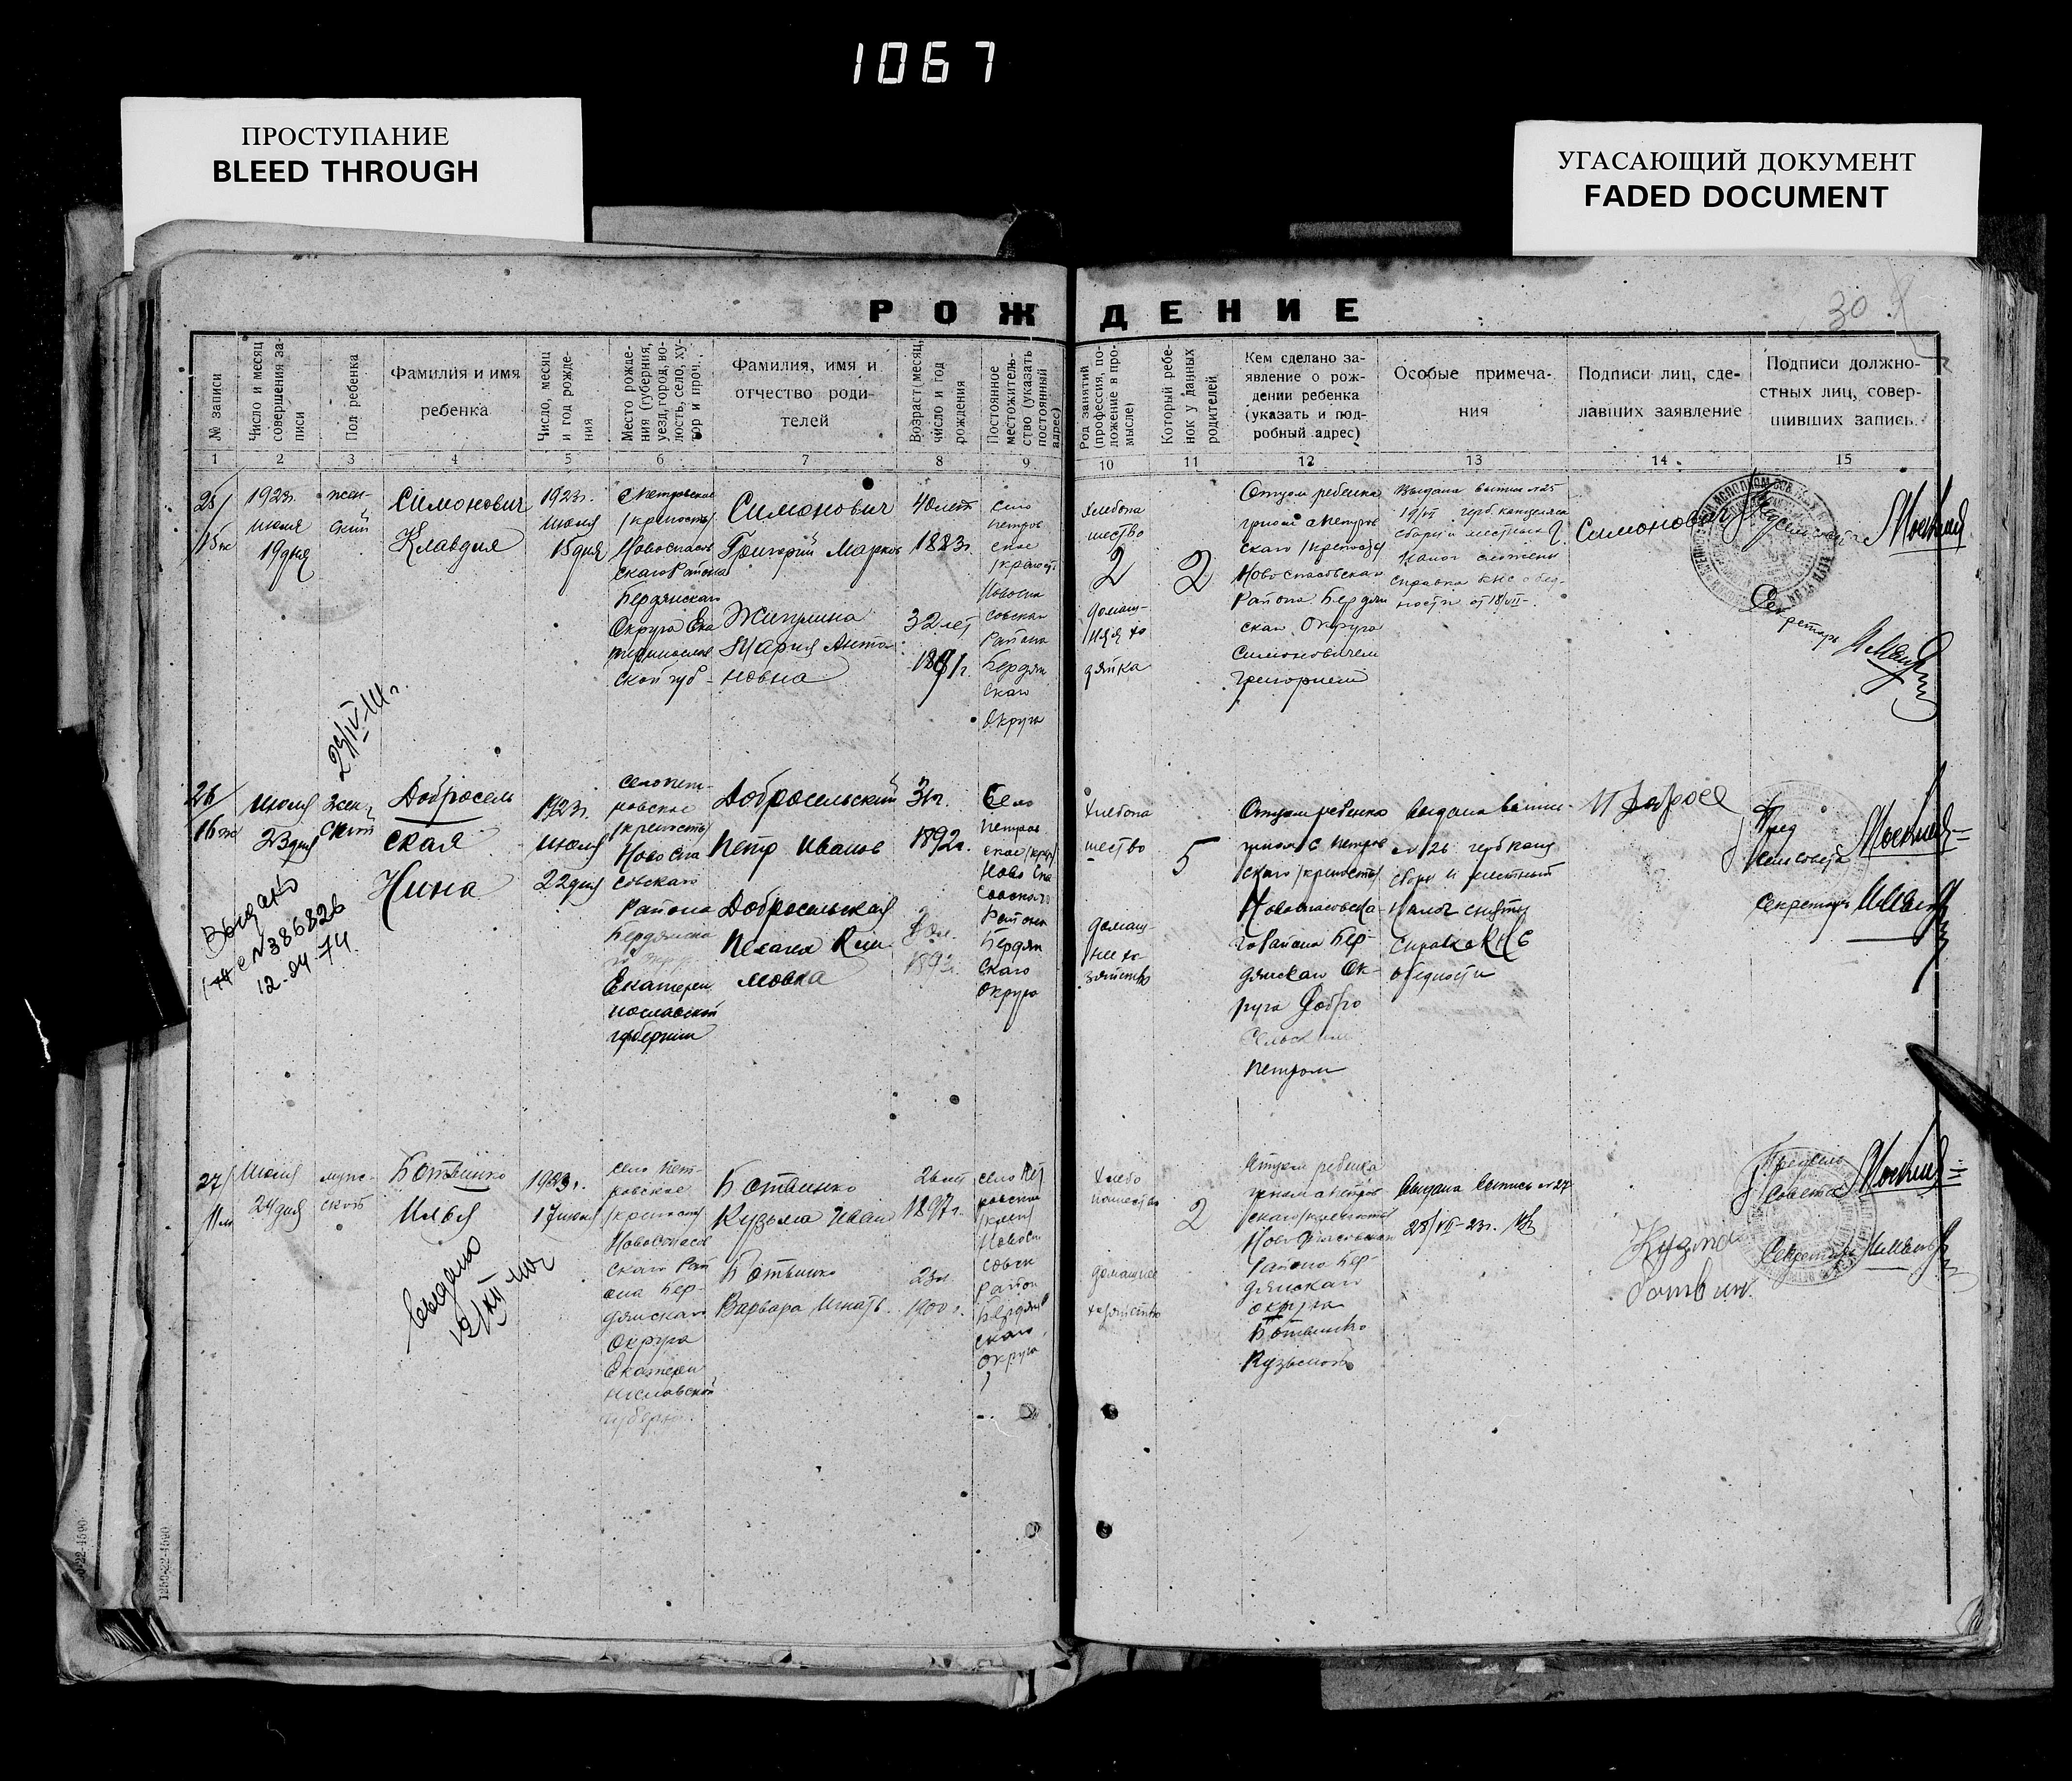 1067
ПРОСТУПАНИЕ
BLEED THROUGH
УГАСАЮЩИЙ ДОКУМЕНТ
FADED DOCUMENT
30
РОЖДЕНИЕ
№ записи
Число и месяц
совершения за-
писи
Пол ребенка
Фамилия и имя
ребенка
Число, месяц
и год рожде-
ния
Место рожде-
ния (губерния,
уезд, город, во-
лость, село, ху-
тор и проч.
Фамилия, имя и
отчество роди-
телей
Возраст (месяц,
число и год
рождения
Постоянное
местожитель-
ство (указать
постоянный
адрес)
Род занятий
(профессия, по-
ложение в про-
мысле)
Который ребе-
нок у данных
родителей
Кем сделано за-
явление о рож-
дении ребенка
(указать и под-
робный адрес)
Особые примеча-
ния
Подписи лиц, сде-
лавших заявление
Подписи должно-
стных лиц, совер-
шивших запись.
1 2 3 4 5 6 7 8 9 10 11 12 13 14 15
25/
15ж
1923г.
июля
19дня
жен-
ский
Симонович
Клавдия
1923г.
июля
15дня
с Петровское
/крепость/
Новоспасов
скаго Района
Бердянскаго
Округа Ека
теринослав
ской губ-
Симонович
Григорий Марков
Жигулина
Мария Анто-
новна
40лет
1883г.
32лет
1891г.
село
Петров
ское
/крепость
Новоспа
совскаго
Района
Бердян
скаго
Округа
хлебопа
шество
2
домаш-
няя хо
зяйка
2
Отцом ребенка
гр-ном с Петров
скаго /крепость/
Новоспасовскаго
Района Бердян
скаго Округа
Симоновичем
Григорием
Выдана выпись №25
19/VII герб. канцелярск
сборы и местный
налог сложены
справка КНС о бед-
ности от 18/VII-
Г. Симонович
Секретарь
29/IV-41г.
26/
16ж
июля
23дня
жен-
ский
Добросель
ская
Нина
1923г.
июля
22дня
село Пет-
ровское
/крепость/
Новоспа
совскаго
Района
Бердянска
Екатерин
нославской
губернии
Добросельский
Петр Иванов
Добросельская
Пелагея Кли
мовна
31г.
1892г.
Село
Петров
ское /креп/
Ново Спа
совскаго
Района
Бердян
скаго
округа
хлебопа
шество
домаш-
нее хо
зяйство
5
Отцом ребенка
гр-ном с Петров
скаго /крепость/
Новоспасовска-
го Района Бер-
дянскаго Ок-
руга Добро
сельским
Петром
Выдана выпис-
№26 герб канц
сборы и местный
налог сняты
справка КНС
о бедности
П Доброс
Пред
сельсовета
Секретарь
Выдано
№386826
12.04.74
27/
11м
Июля
24дня
муж-
ской
Ботвинко
Илья
1923г.
17июля
село Пет-
ровское
/крепость/
Новоспасов
скаго Рай
она Бер-
дянскаго
Округа
Екатери
нославской
губерн.
Ботвинко
Кузьма Иван
Ботвинко
Варвара Игнать.
26лет
1897г.
23л.
1900г.
село Пет
ровское
/креп/
Новоспа
совск
район
Бердян
скаго
округа
хлебо
пашество
домашнее
хозяйство
2
Отцом ребенка
гр-ном с Петров
скаго /крепость/
Ново Спасовскаго
Района Бер-
дянскаго
округа
Ботвинко
Кузьмой
Выдана выпись №27
28/VII-23г.
Кузма
Ботвин.
Предсель
совета
Секретарь
Выдано
12/XII 1940г
1250-22-4590